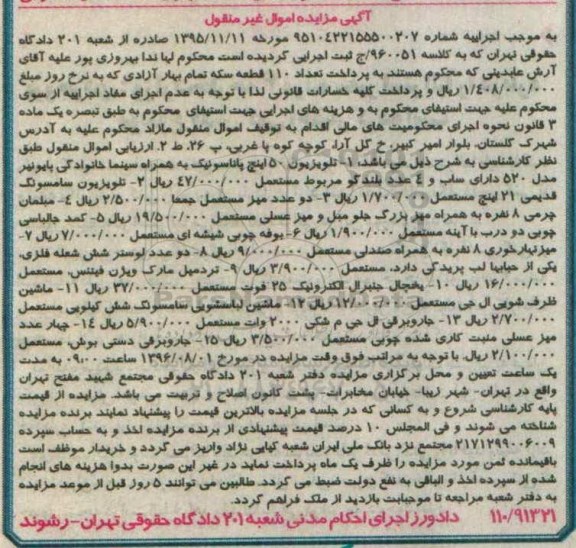 آگهی مزایده اموال غیر منقول
به موجب اجراییه شماره ۹۵۱۰۴۲۲۱۵۵۵۰۰۲۰۷ مورخه ۱۳۹۵/۱۱/۱۱ صادره از شعبه ۲۰۱ دادگاه
حقوقی تهران که به کلاسه ۹۶۰۰۵۱/ج ثبت اجرایی گردیده است محکوم لها ندا بهروزی پور علیه آقای
آرش عابدینی که محکوم هستند به پرداخت تعداد ۱۱۰ قطعه سکه تمام بهار آزادی که به نرخ روز مبلغ
۱/۴۰۸/۰۰۰/۰۰۰ ریال و پرداخت کلیه خسارات قانونی لذا با توجه به عدم اجرای مفاد اجراییه از سوی
محکوم علیه جهت استیفای محکوم به و هزینه های اجرایی جهت استیفای محکوم به طبق تبصره یک ماده
۳ قانون نحوه اجرای محکومیت های مالی اقدام به توقیف اموال منقول مازاد محکوم علیه به آدرس
شهرک گلستان، بلوار امیر کبیر، خ گل آرا، کوچه کوه پا غربی، پ ۲۶، ط ۲. ارزیابی اموال منقول طبق
نظر کارشناسی به شرح ذیل می باشد، ۱- تلویزیون ۵۰ اینچ پاناسونیک به همراه سینما خانوادگی پایونیر
مدل ۵۲۰ دارای ساب و ۴ عدد بلندگو مربوط مستعمل ۴۷/۰۰۰/۰۰۰ ریال ۲- تلویزیون سامسونگ
قدیمی ۲۱ اینچ مستعمل ۱/۷۰۰/۰۰۰ ریال ۳- دو عدد میز مستعمل جمعا ۲/۵۰۰/۰۰۰ ریال ۴- مبلمان
چرمی ۸ نفره به همراه میز بزرگ جلو مبل و میز عسلی مستعمل ۱۹/۵۰۰/۰۰۰ ریال ۵- کمد جالباسی
چوبی دو درب با آینه مستعمل ۱/۹۰۰/۰۰۰ ریال ۶- بوفه چوبی شیشه ای مستعمل ۷/۰۰۰/۰۰۰ ریال ۷-
میزنهارخوری ۸ نفره به همراه صندلی مستعمل ۹/۰۰۰/۰۰۰ ریال ۸- دو عدد لوستر شش شعله فلزی،
یکی از حبابها لب پریدگی دارد، مستعمل ۳/۹۰۰/۰۰۰ ریال ۹- تردمیل مارک ویژن فیتنس، مستعمل
۱۶/۰۰۰/۰۰۰ ریال ۱۰- یخچال جنرال الکترونیک ۲۵ فوت مستعمل ۳۷/۰۰۰/۰۰۰ ریال ۱۱- ماشین
ظرف شویی ال جی مستعمل ۱۲/۰۰۰/۰۰۰ ریال ۱۲- ماشین لباسشویی سامسونگ شش کیلویی مستعمل
۲/۷۰۰/۰۰۰ ریال ۱۳- جاروبرقی ال جی م شکی ۲۰۰۰ وات مستعمل ۵/۹۰۰/۰۰۰ ریال ۱۴- چهار عدد
میز عسلی منبت کاری شده چوبی مستعمل ۳/۵۰۰/۰۰۰ ریال ۱۵- جاروبرقی دستی بوش، مستعمل
۲/۱۰۰/۰۰۰ ریال. با توجه به مراتب فوق وقت مزایده در مورخ ۱۳۹۶/۰۸/۰۱ ساعت ۰۹:۰۰ به مدت
یک ساعت تعیین و محل برگزاری مزایده دفتر شعبه ۲۰۱ دادگاه حقوقی مجتمع شهید مفتح تهران
واقع در تهران- شهر زیبا- خیابان مخابرات- پشت کانون اصلاح و تربیت می باشد. مزایده از قیمت
پایه کارشناسی شروع و به کسانی که در جلسه مزایده بالاترین قیمت را پیشنهاد نمایند برنده مزایده
شناخته می شوند و فی المجلس ۱۰ درصد قیمت پیشنهادی از برنده مزایده اخذ و به حساب سپرده
۲۱۷۱۲۹۹۰۰۶۰۰۹ مجتمع نزد بانک ملی ایران شعبه کیایی نژاد واریز می گردد و خریدار موظف است
باقیمانده ثمن مورد مزایده را ظرف یک ماه پرداخت نماید در غیر این صورت بدوا هزینه های انجام
شده از سپرده اخذ و الباقی به نفع دولت ضبط می گردد. طالبین می توانند ۵ روز قبل از موعد مزایده
به دفتر شعبه مراجعه تا موجبات بازدید از ملک فراهم گردد.
۱۱۰/۹۱۳۲۱ دادورز اجرای احکام مدنی شعبه ۲۰۱ دادگاه حقوقی تهران - رشوند